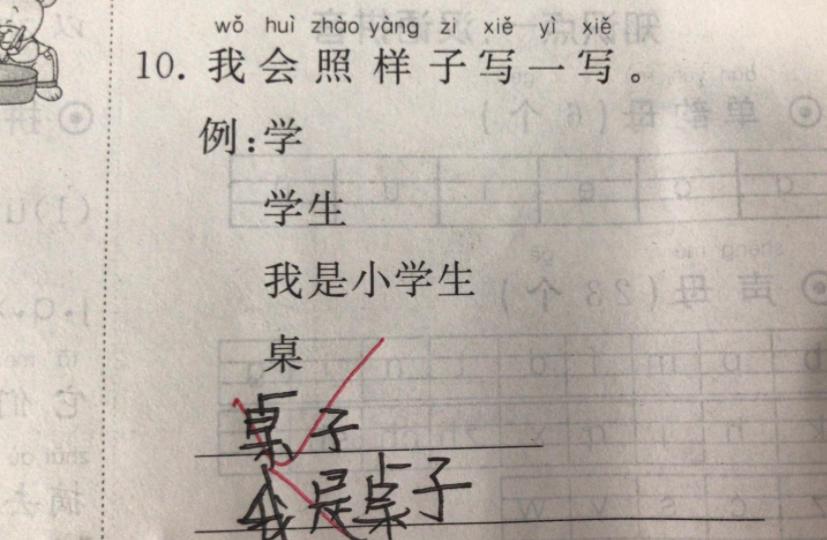 wǒ huì zhào yàng zi xiě yì xiě
10. 我会照样子写一写。
例:学
学生
我是小学生
桌
桌子
我是桌子